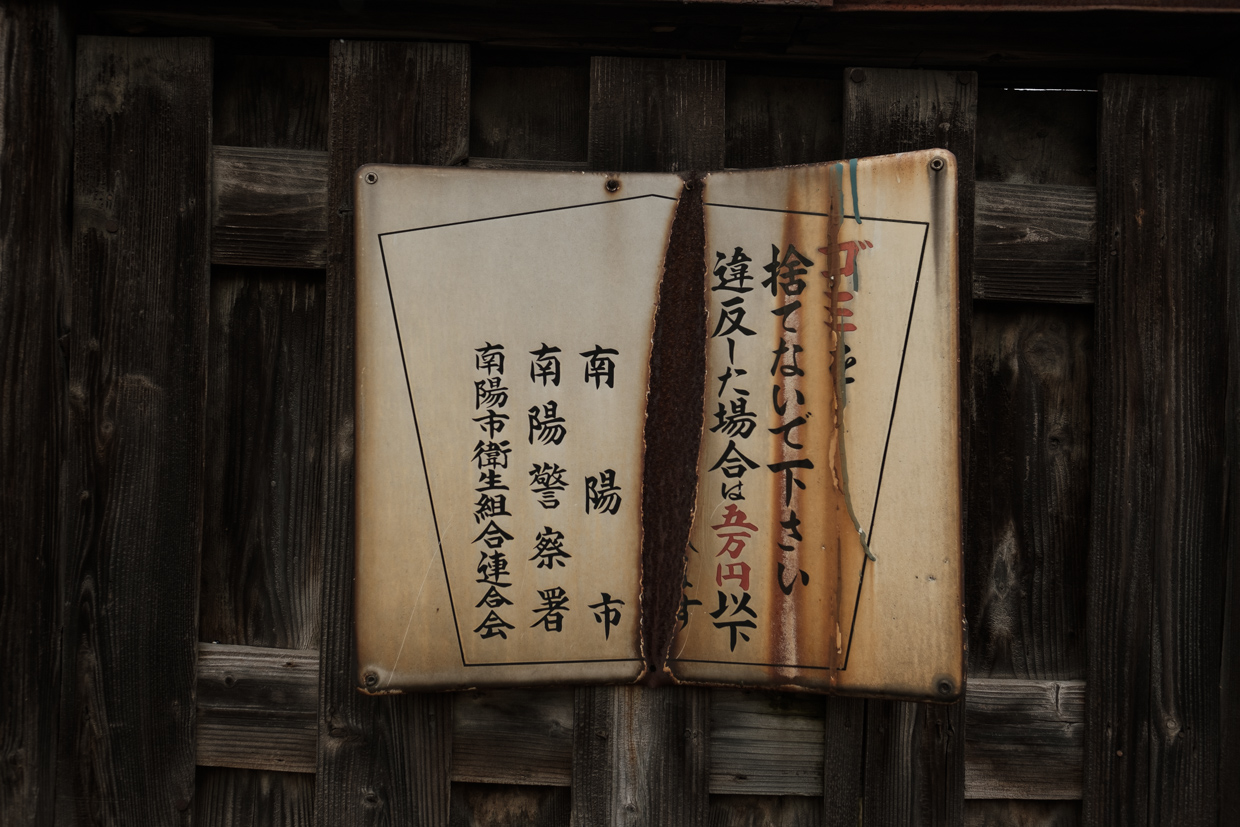 ゴミを
捨てないで下さい
違反した場合は五万円以下
す
南陽市
南陽警察署
南陽市衛生組合連合会